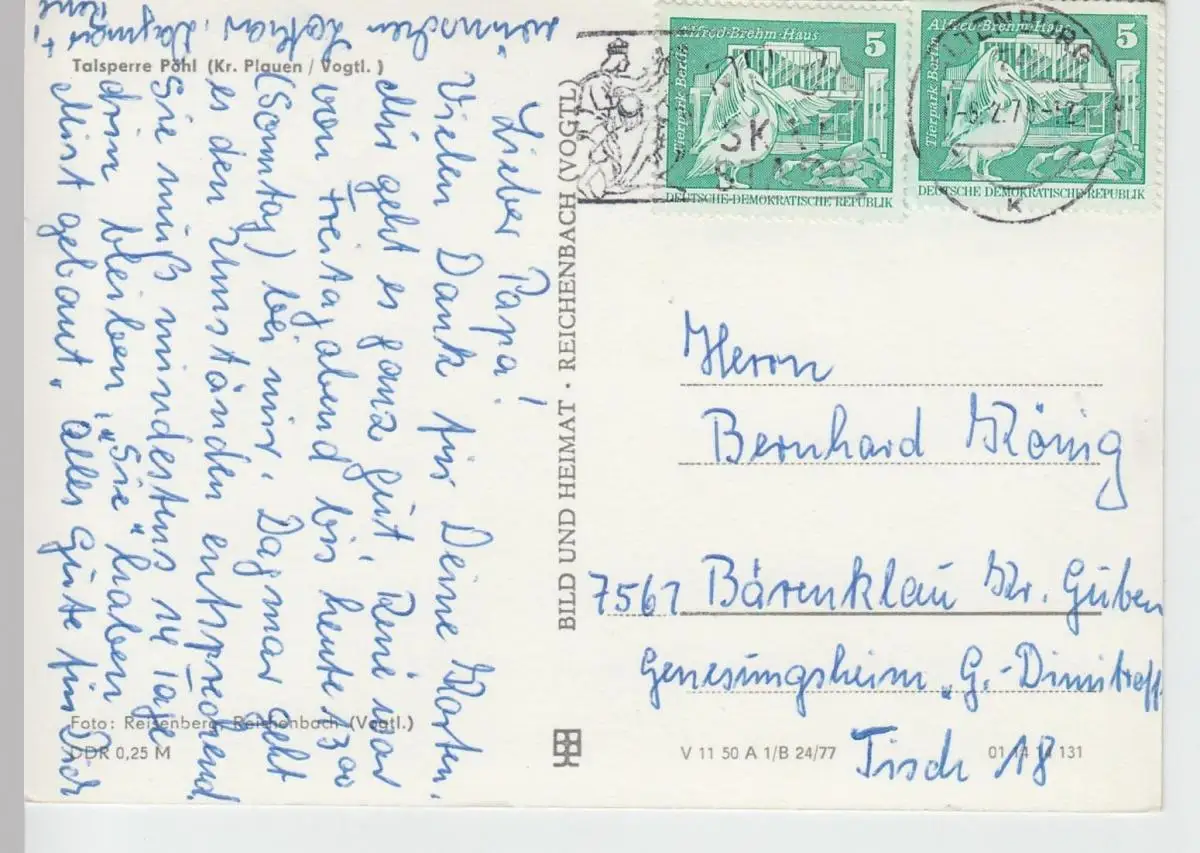 Talsperre Pöhl (Kr. Plauen / Vogtl.)
Lieber Papa!
Vielen Dank für Deine Karten.
Mir geht es ganz gut. René war
von Freitag abend bis heute 13 00
(Sonntag) bei mir. Dagmar geht
es den Umständen entsprechend
Sie muß mindestens 14 Tage
drin bleiben. "Sie" haben
Mist gebaut. Alles Gute für Dich
wünschen Lothar, Dagmar +
René
Foto: Reisenberg, Reichenbach (Vogtl.)
DDR 0,25 M
BILD UND HEIMAT · REICHENBACH (VOGTL)
V 11 50 A 1/B 24/77
01 14 14 131
Alfred-Brehm-Haus
5
Tierpark Berlin
DEUTSCHE DEMOKRATISCHE REPUBLIK
Alfred-Brehm-Haus
5
Tierpark Berlin
DEUTSCHE DEMOKRATISCHE REPUBLIK
ALTENBURG
SKAT
STADT
Herrn
Bernhard König
7561 Bärenklau Kr. Guben
Genesungsheim "G.-Dimitroff
Tisch 18